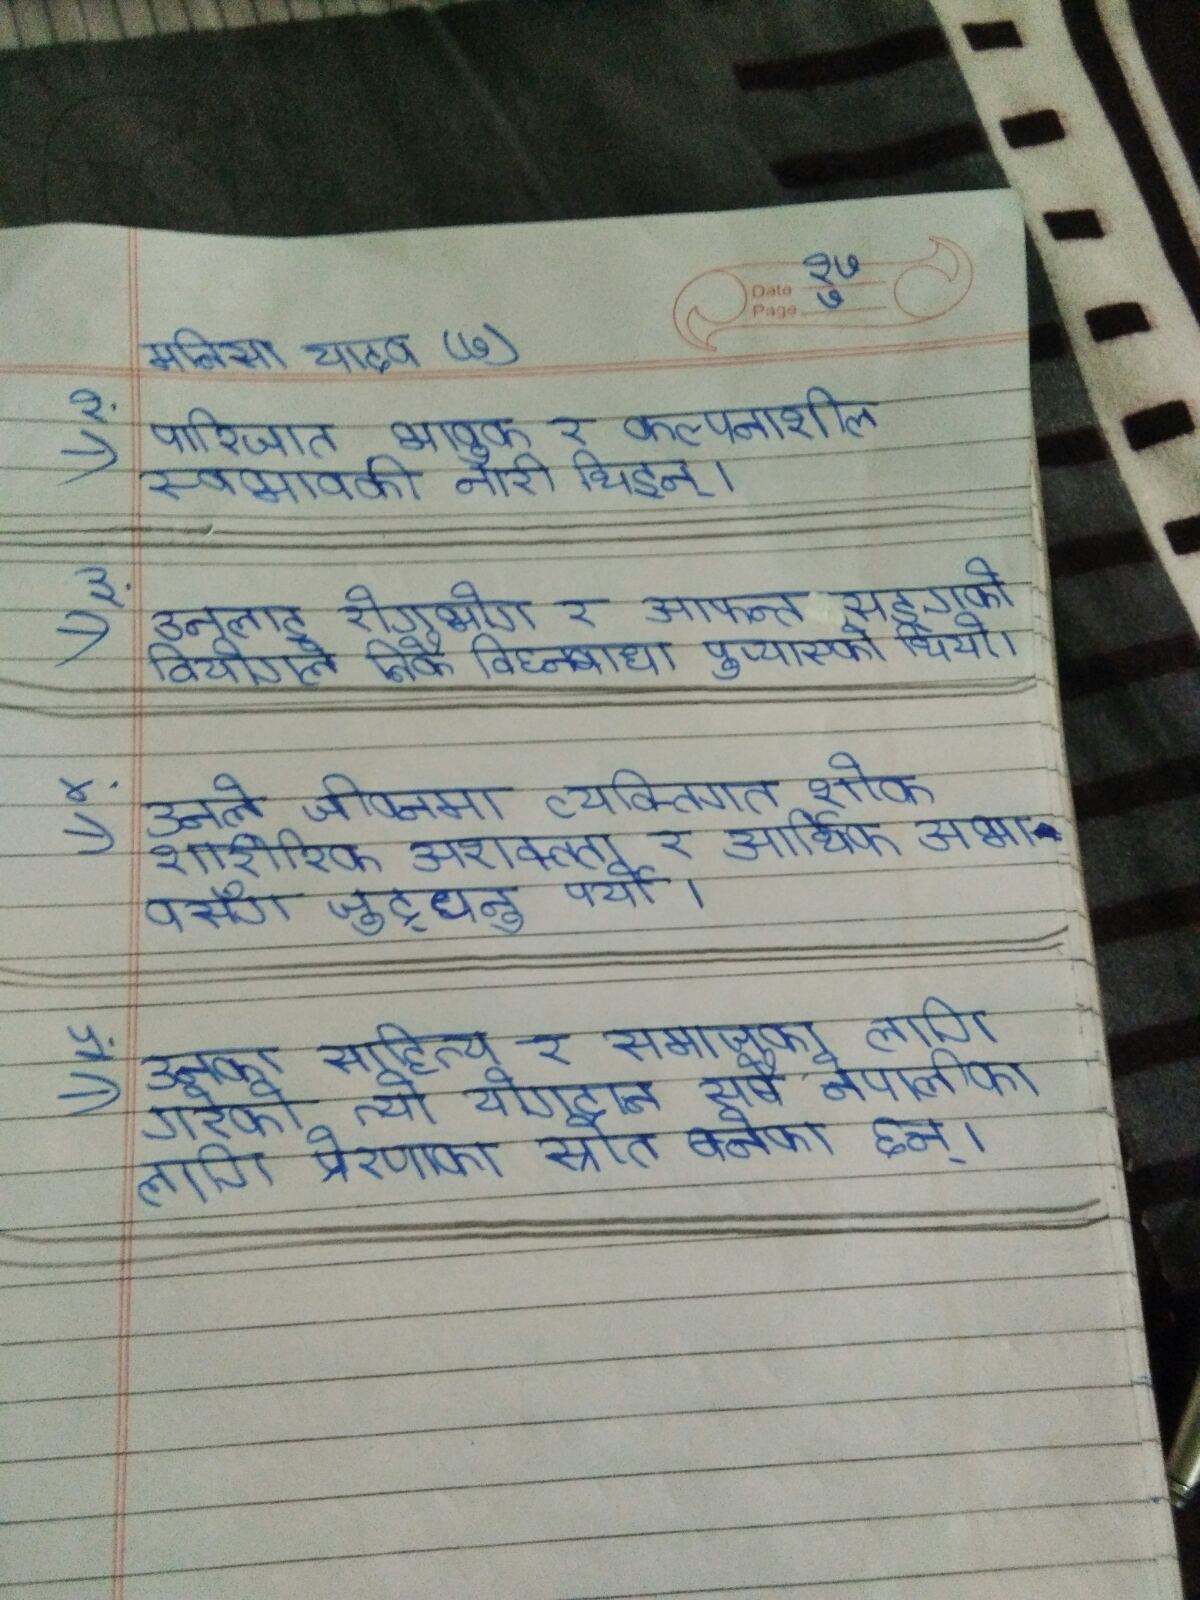 Date २७
Page ७
मनिसा यादव (७)
२.
⇒ पारिजात भावुक र कल्पनाशील
स्वभावकी नारी थिइन्।
३.
⇒ उनलाइ रोगभोग र आफन्त सङ्गको
वियोगले निकै विघ्नबाधा पुर्‍यास्को थियो।
४.
⇒ उनले जीवनमा व्यक्तिगत शोक
शारीरिक अशक्तता र आर्थिक अभा-
वसँग जुद्धनु पर्यो।
५.
⇒ उनका साहित्य र समाजका लागि
गरेको त्यो योगदान सबै नेपालीका
लागि प्रेरणाका स्रोत बनेका छन्।